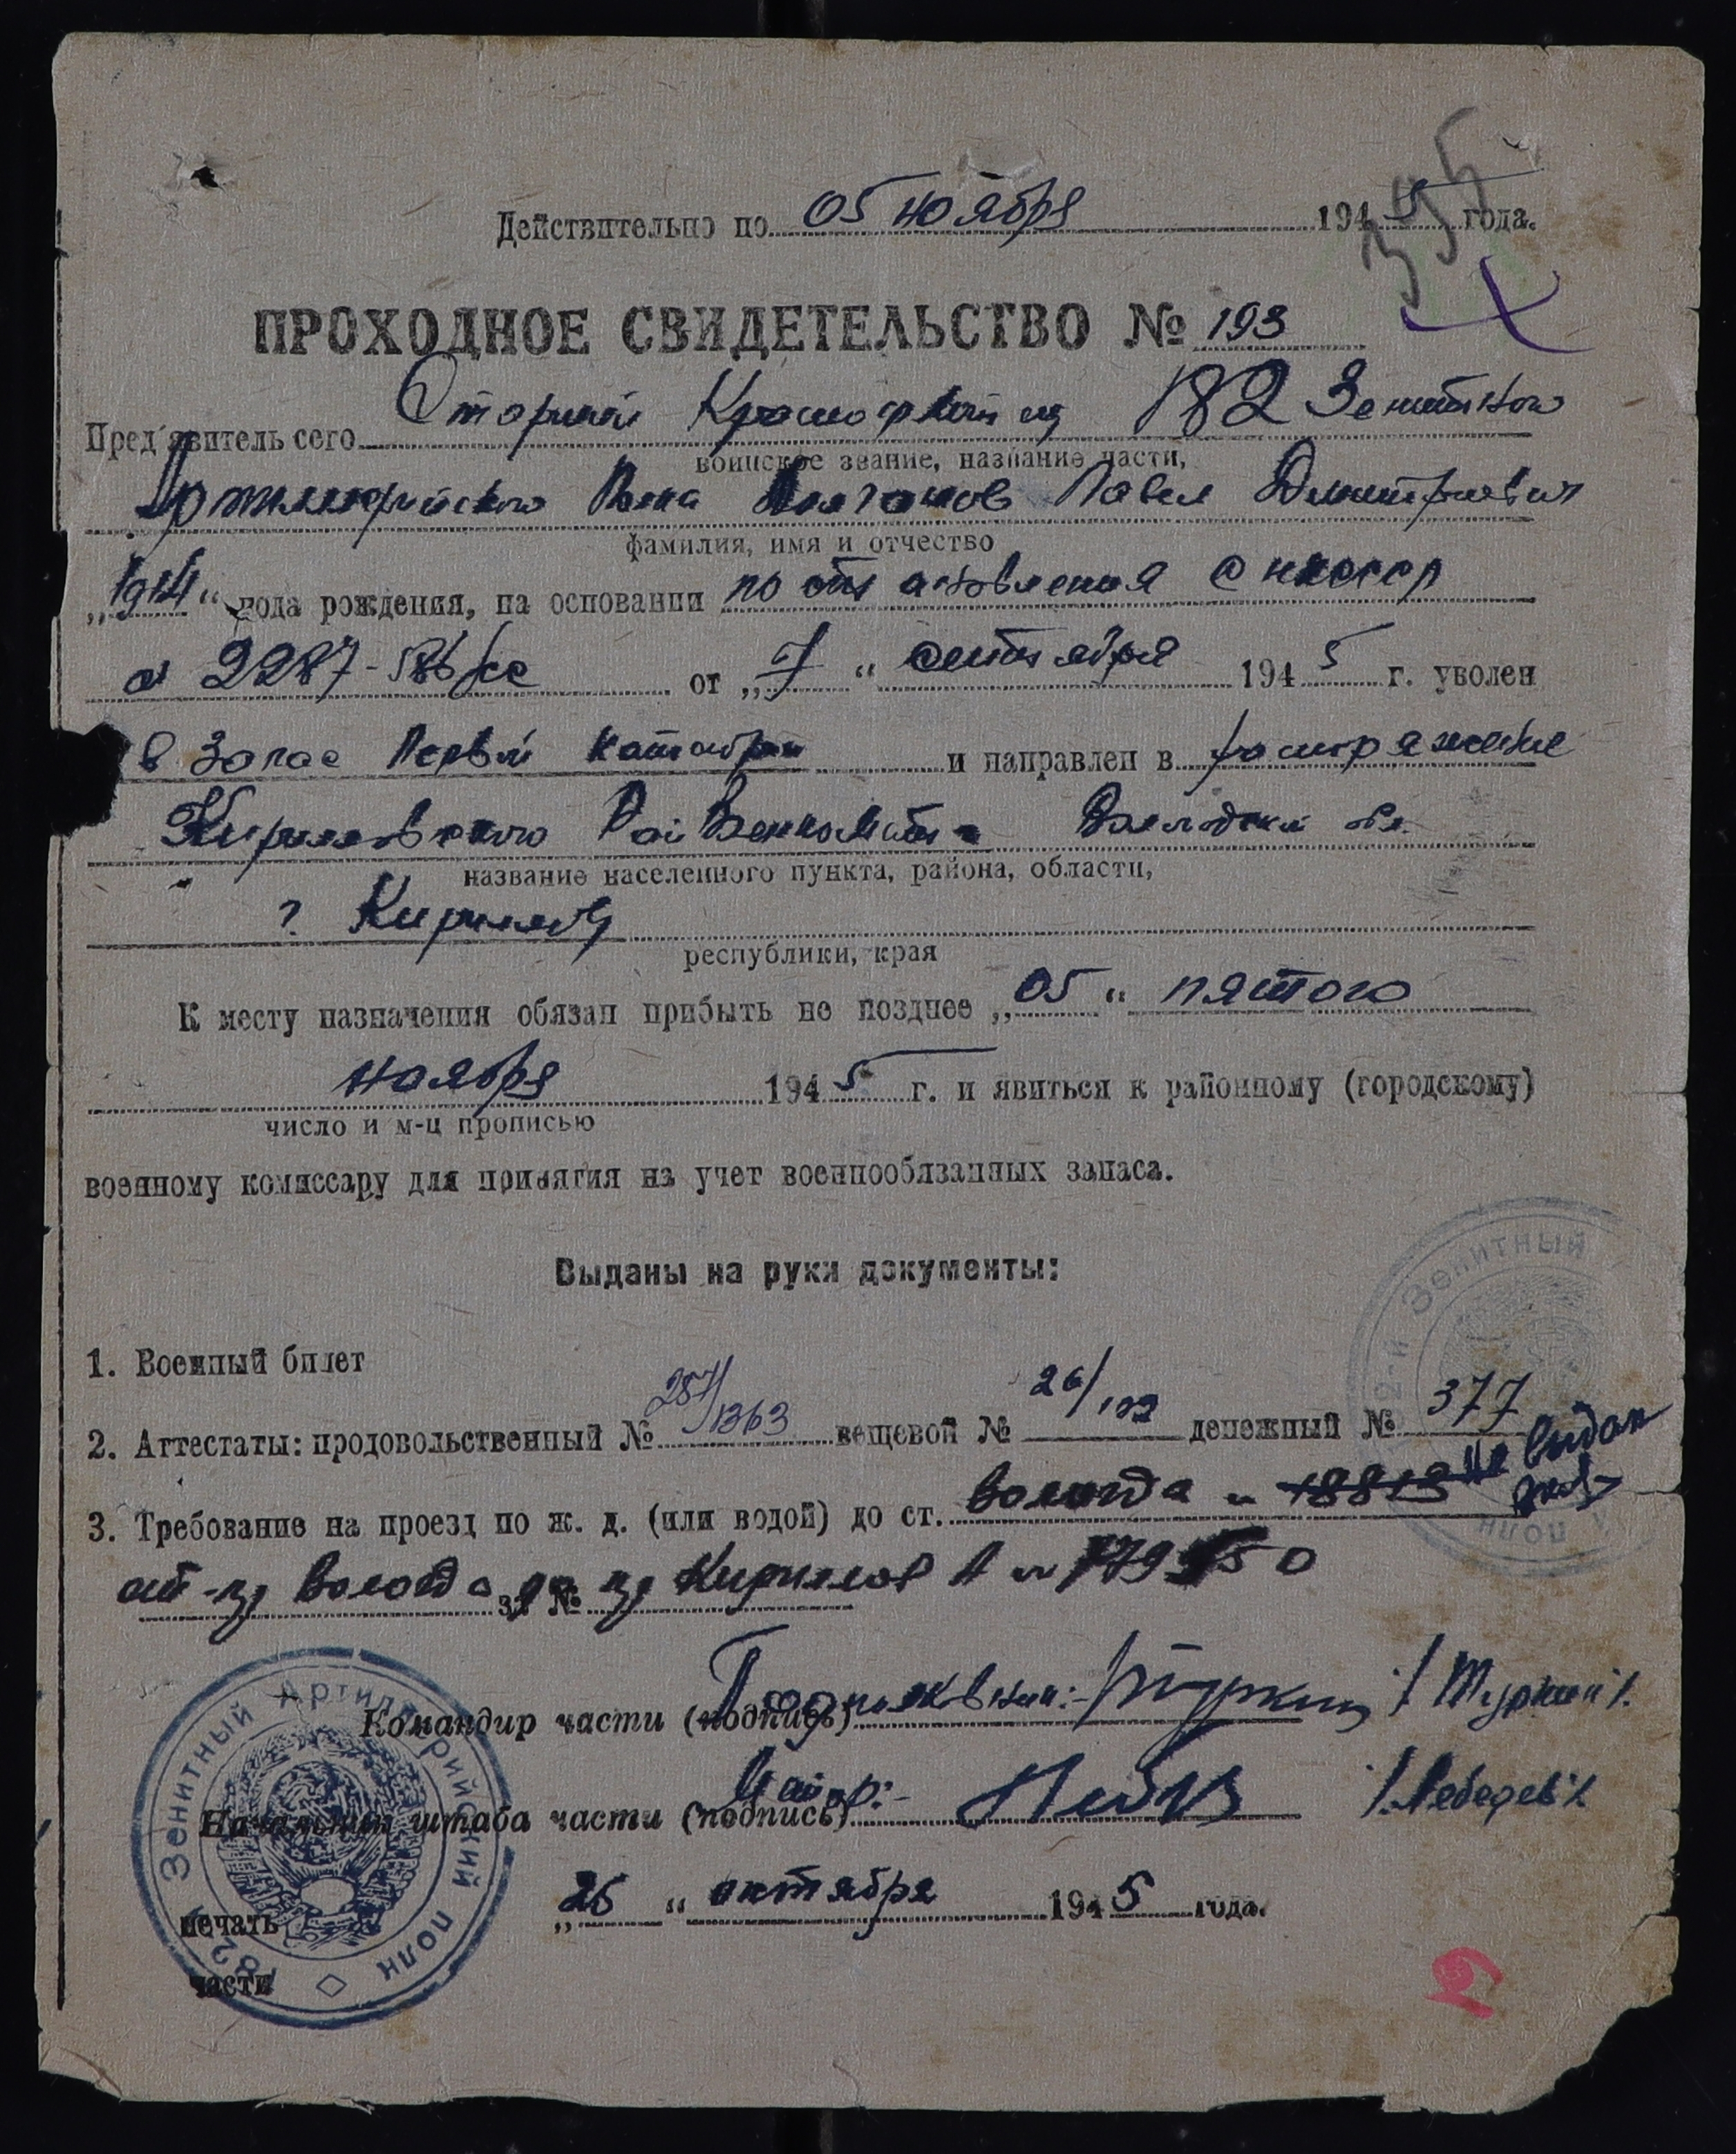 395
Действительно по 05 ноября 1945 года.
ПРОХОДНОЕ СВИДЕТЕЛЬСТВО № 193
Пред'явитель сего Старший Красноармеец 182 Зенитного
воинское звание, название части,
Артиллерийского Полка Павел Дмитриевич
фамилия, имя и отчество
„1914“ года рождения, на основании постановления СНКСССР
№ 2287-586/сс от „7“ сентября 1945 г. уволен
в запас Первой категории и направлен в распоряжение
Кирилловского РайВоенкомата Вологодской обл.
название населенного пункта, района, области,
г. Кириллов
республики, края
К месту назначения обязан прибыть не позднее „05“ пятого
ноября 1945 г. и явиться к районному (городскому)
число и м-ц прописью
военному комиссару для принятия на учет военнообязанных запаса.
Выданы на руки документы:
1. Военный билет
2. Аттестаты: продовольственный № 257/1363 вещевой № 26/192 денежный № 377
3. Требование на проезд по ж. д. (или водой) до ст. Вологда № 18813 не выдан
Вологда до Кириллов за №
Командир части (подпись) Подполковник: Туркин /Туркин/.
Начальник штаба части (подпись) Майор: /Лебедев/.
„26“ октября 1945 года.
печать
части
182-й Зенитный Артиллерийский полк
Зенитный полк